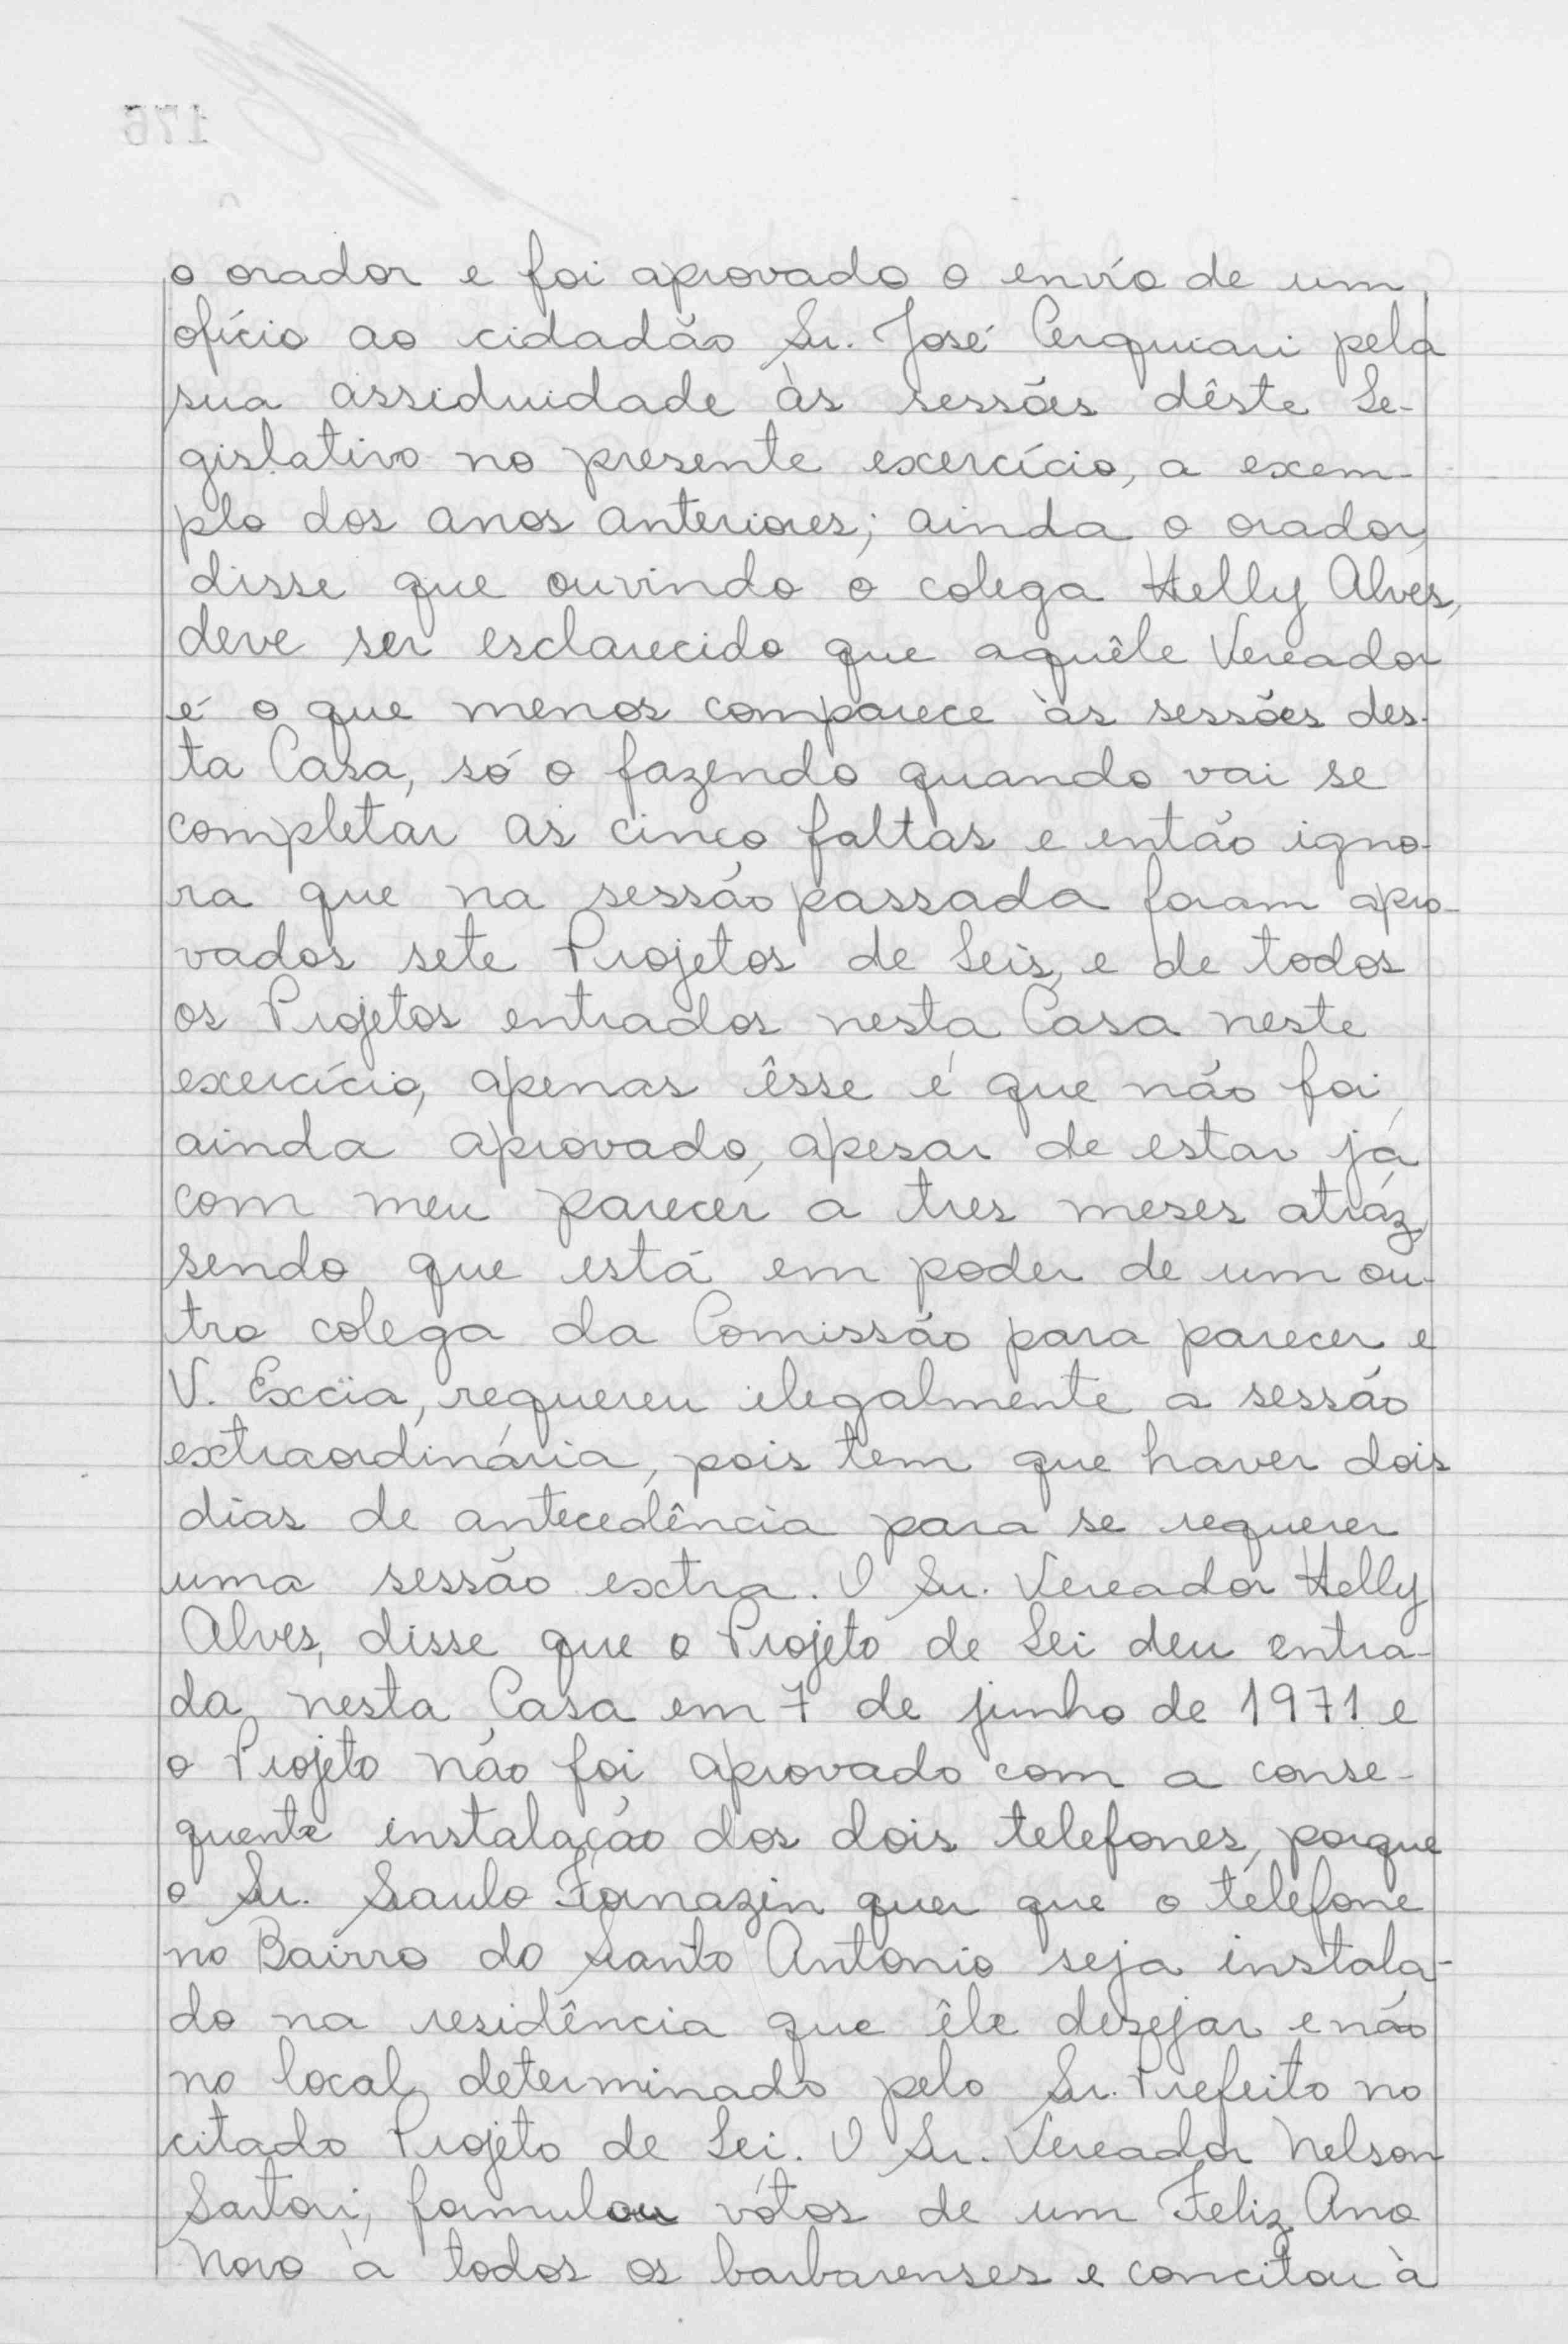 176
o orador e foi aprovado o envío de um
ofício ao cidadão Sr. José Cerquiari pela
sua assiduidade às sessões dêste Le-
gislativo no presente exercício, a exem-
plo dos anos anteriores; ainda o orador,
disse que ouvindo o colega Helly Alves,
deve ser esclarecido que aquêle Vereador
é o que menos comparece às sessões des-
ta Casa, só o fazendo quando vai se
completar as cinco faltas e então igno-
ra que na sessão passada foram apro-
vados sete Projetos de Leis, e de todos
os Projetos entrados nesta Casa neste
exercício, apenas êsse é que não foi
ainda aprovado, apesar de estar já
com meu parecer a tres meses atráz,
sendo que está em poder de um ou-
tro colega da Comissão para parecer e
V. Excia, requereu ilegalmente a sessão
extraordinária, pois tem que haver dois
dias de antecedência para se requerer
uma sessão extra. O Sr. Vereador Helly
Alves, disse que o Projeto de Lei deu entra-
da nesta Casa em 7 de junho de 1971 e
o Projeto não foi aprovado com a conse-
quente instalação dos dois telefones, porque
o Sr. Saulo Fornazin quer que o telefone
no Bairro do Santo Antonio seja instala-
do na residência que êle desejar e não
no local determinado pelo Sr. Prefeito no
citado Projeto de Lei. O Sr. Vereador Nelson
Sartori, formulou vótos de um Feliz Ano
Novo à todos os barbarenses e concitou à